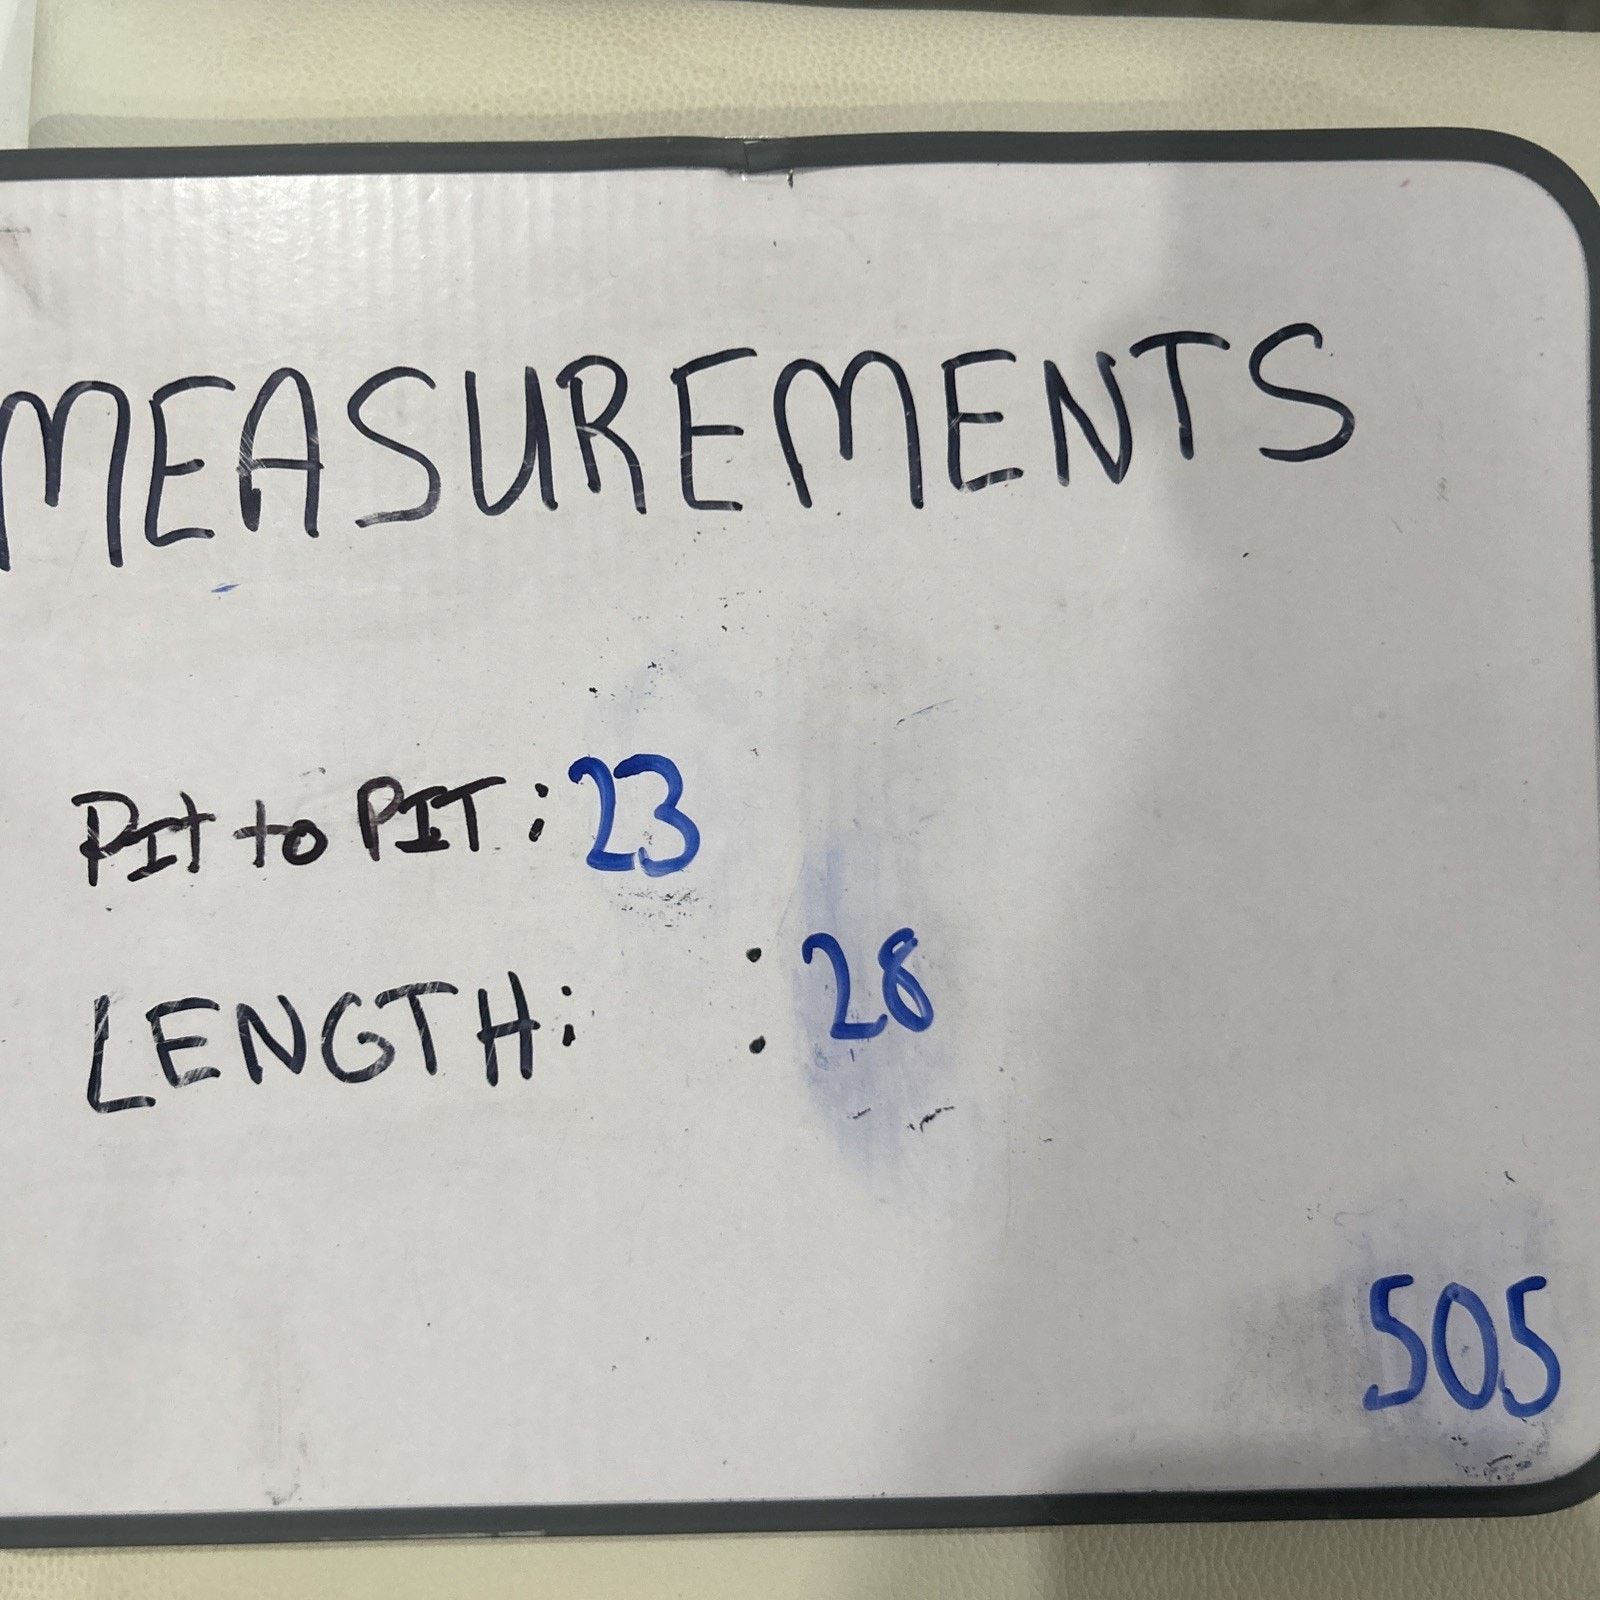 MEASUREMENTS
PIt to PIT: 23
LENGTH: : 28
505